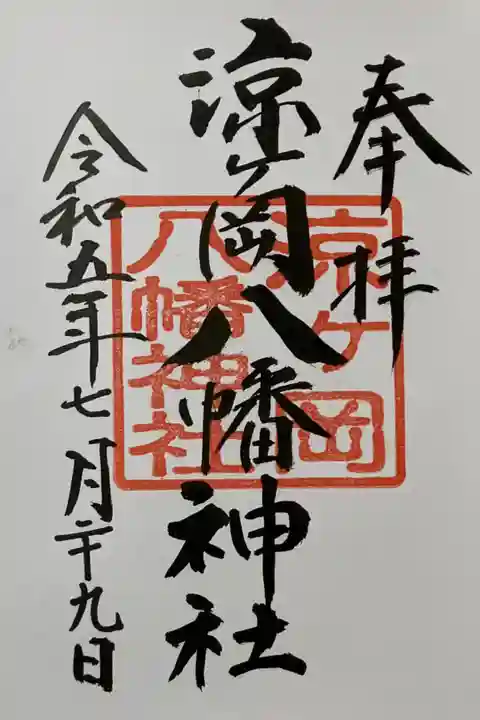 奉拝
涼ヶ岡八幡神社
令和五年七月二十九日
涼ヶ岡
八幡神社